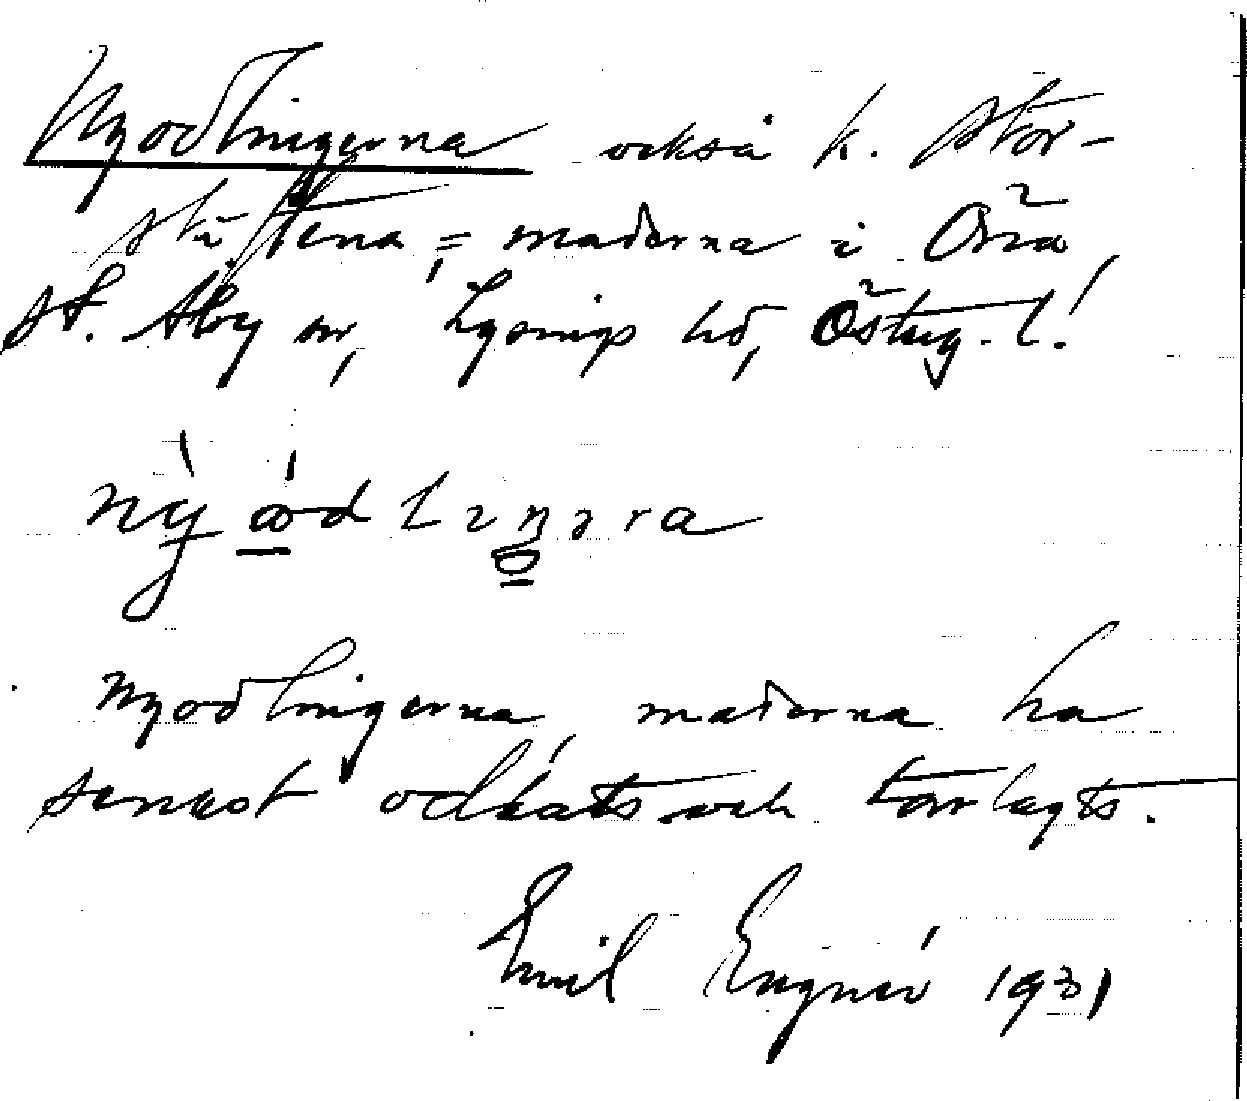 Nyodlingerna också k. Stor-
stiftena, = maderna i Öna,
st. Åby sn, Lysings hd, Östergötl.
ny òd l ı n g ə r n a
Nyodlingerna, maderna ha
senast odlats och torrlagts.
Emil Engnér 1931